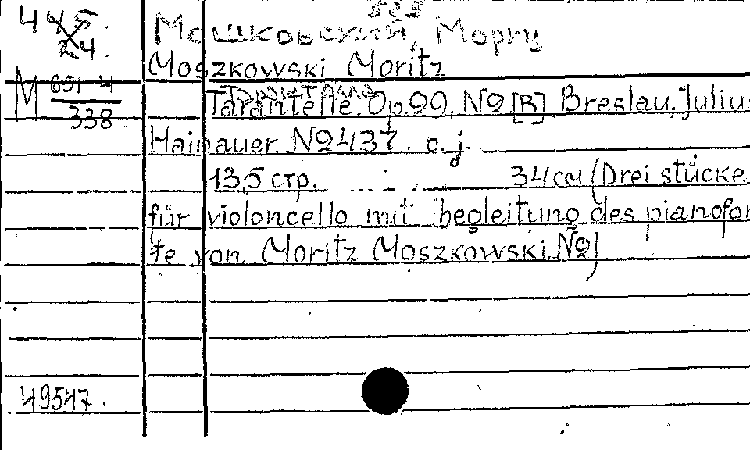 445.
24.
Мошковский, Мориц
Moszkowski Moritz
M 691-4
338
Tarantelle. Op.29, №2 [B] Breslau, Juliu
Hainauer. №437. c. j.
13,5 стр. 34 см (Drei stücke
für violoncello mit begleitung des pianofor
te von Moritz Moszkowski №2)
49547.